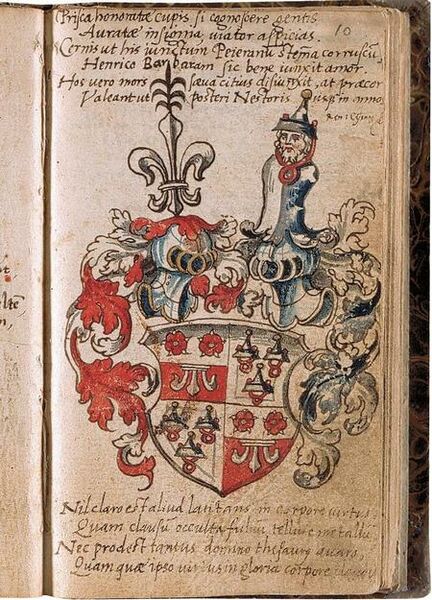 Prisca honoratæ cupis si cognoscere gentis
10
Auratæ insignia viator aspicias.
Cernis ut his iunctum Peieranu stema corruscu
Henrico Barbaram sic bene iunxit amor.
Hos vero mors sæva citius disiunxit, at præcor
Valeant ut posteri Nestoris usque in annos
Nil claro est aliud latitans in corpore virtus
Quam clausu occulta fulvu tellure metallu
Nec prodest tantus domino thesaurus avaro,
Quam quæ ipso virtus in gloria corpore